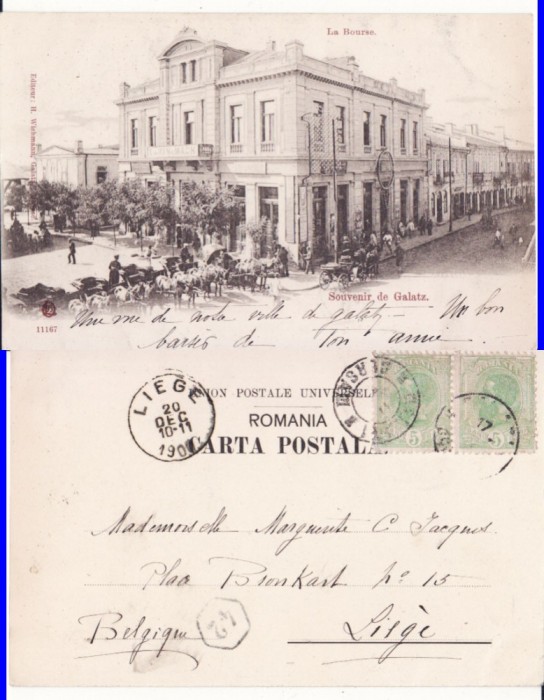 La Bourse.
Editeur: H.
Souvenir de Galatz.
11167
Une vue de notre ville de galatz – Un bon
baiser de Ton amie
UNION POSTALE UNIVERSELLE
ROMANIA
CARTA POSTALA
LIEGE
20
DEC
10-11
190
5
5
17
Mademoiselle Marguerite C Jacques
Place Bronkart nº 15
Belgique
Liège
42